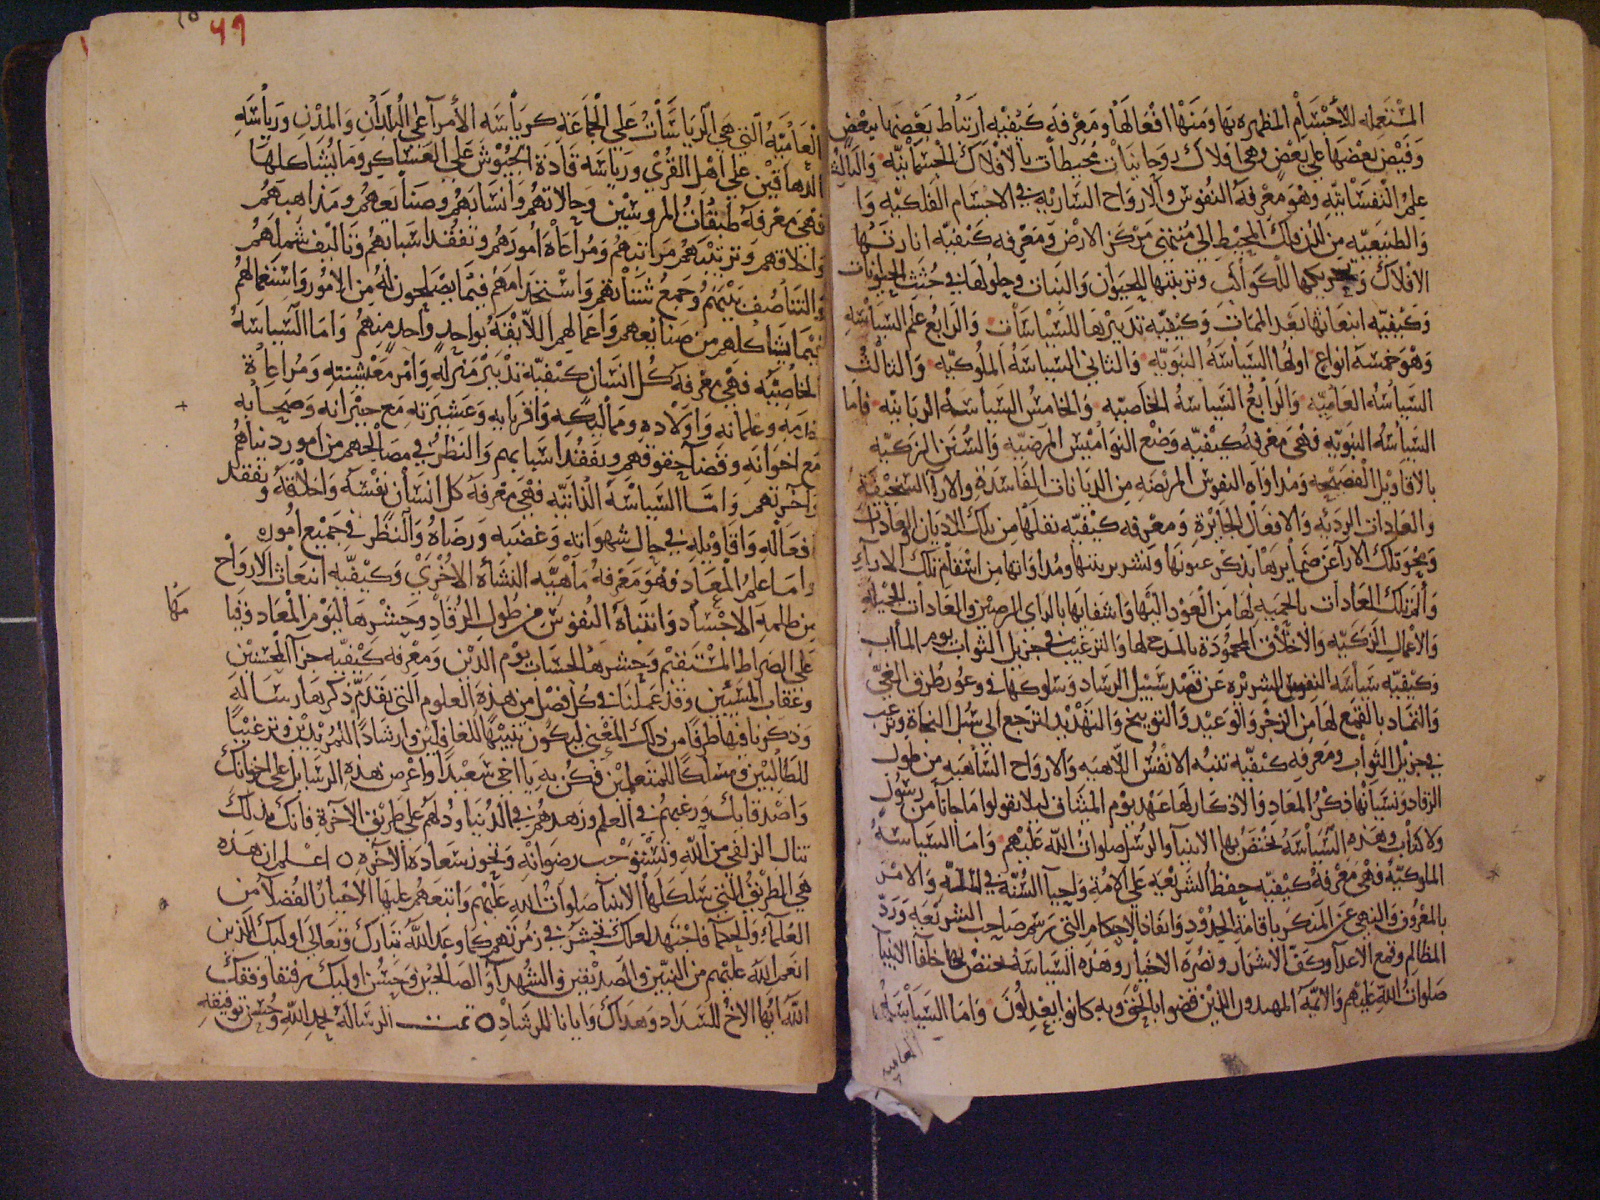 المستعملة للأجسام المظهرة بها ومنها افعالها ومعرفة كيفية ارتباط بعضها ببعض
وفيض بعضها على بعض وهي افلاك روحانيات محيطات بالافلاك الجسمانية والثالث
علم النفسانية وهو معرفة النفوس والارواح السارية في الاجسام الفلكية وا
والطبيعية من لدن فلك المحيط الى منتهى مركز الارض ومعرفة كيفية ادارتها
الافلاك وتحريكها للكواكب وتربيتها للحيوان والنبات وحلولها في جثث الحيوانات
وكيفية انبعاثها بعد الممات وكيفية تدبيرها للسياسات والرابع علم السياسة
وهو خمسة انواع اولها السياسة النبوية والثاني السياسة الملوكية والثالث
السياسة العامية والرابع السياسة الخاصية والخامس السياسة الذاتية فاما
السياسة النبوية فهي معرفة كيفية وضع النواميس المرضية والسنن الزكية
بالاقاويل الفصيحة ومداواة النفوس المريضة من الديانات الفاسدة والارا السخيفة
والعادات الردية والافعال الجائرة ومعرفة كيفية نقلها من تلك الاديان والعادات
ومحو تلك الارا عن ضمايرها بذكر عيوبها ونشر تزييفها ومداواتها من اسقام تلك الاراء
والف تلك العادات بالحمية لها من العود اليها واشفايها بالراي المرضي والعادات الجميلة
والاعمال الزكية والاخلاق المحمودة بالمدح لها والترغيب في جزيل الثواب يوم المآب
وكيفية سياسة النفوس الشريرة عن قصد سبيل الرشاد وسلوكها في وعور طرق الغي
والتماد بالقمع لها من الزجر والوعيد والتوبيخ والتهديد لترجع الى سبل النجاة وترغب
في جزيل الثواب ومعرفة كيفية تنبه الانفس اللاهية والارواح الساهية من طول
الرقاد ونسيانها ذكر المعاد والاذكار لها عهد يوم الميثاق ليلا يقولوا ما جانا من رسول
ولا كتاب وهذه السياسة تختص بها الانبيا والرسل صلوات الله عليهم واما السياسة
الملوكية فهي معرفة كيفية حفظ الشريعة على الامة واحيا السنة في الملة والامر
بالمعروف والنهي عن المنكر باقامة الحدود وانفاذ الاحكام التي رسمها صاحب الشريعة ورد
المظالم وقمع الاعدا وكف الاشرار ونصرة الاخيار وهذه السياسة تختص بها خلفا الانبيا
صلوات الله عليهم والائمة المهديون الذين قضوا بالحق وبه كانوا يعدلون واما السياسة
العامية
٤٩
العامية التي هي الرياسات على الجماعة كرياسة الأمرا على البلدان والمدن ورياسة
الدهاقين على اهل القرى ورياسة قادة الجيوش على العساكر وما يشاكلها
فهي معرفة طبقات المروسين وحالاتهم وانسابهم وصنايعهم ومذاهبهم
واخلاقهم وترتيبهم مراتبهم ومراعاة امورهم وتفقد اسبابهم وتاليف شملهم
والتناصف بينهم وجمع شتاتهم واستخدامهم فيما يصلحون له من الامور واستعمالهم
فيما يشاكلهم من صنايعهم واعمالهم اللايقة بواحد واحد منهم واما السياسة
الخاصية فهي معرفة كل انسان كيفية تدبير منزله وامر معيشته ومراعاة
خدمه وغلمانه واولاده ومماليكه واقربايه وعشيرته مع جيرانه وصحبته
مع اخوانه وقضا حقوقهم وتفقد اسبابهم والنظر في مصالحهم من امور دنياهم
واخرتهم واما السياسة الذاتية فهي معرفة كل انسان نفسه واخلاقه وتفقد
افعاله واقاويله في حال شهواته وغضبه ورضاه والنظر في جميع اموره
واما علم المعاد فهو معرفة ماهية النشأة الأخرى وكيفية انبعاث الارواح
من ظلمة الاجساد وانتباه النفوس من طول الرقاد وحشرها ليوم المعاد وقيامها
على الصراط المستقيم وحشرها لحساب يوم الدين ومعرفة كيفية جزا المحسنين
وعقاب المسيئين وقد عملنا في كل فصل من هذه العلوم التي تقدم ذكرها رسالة
وذكرنا فيها طرفا من ذلك المعنى ليكون تنبيها للغافلين وارشادا للمريدين وترغيبا
للطالبين ومسلكا للمتعلمين فكن به يا اخي سعيدا واعرض هذه الرسايل على اخوانك
واصدقايك ورغبهم في العلم وزهدهم في الدنيا ودلهم على طريق الاخرة فانك بذلك
تنال الزلفى من الله وتستوجب رضوانه وتحوز سعادة الآخرة ٥ اعلم ان هذه
هي الطريق التي سلكها الانبيا صلوات الله عليهم واتبعهم عليها الاخيار الفضلا من
العلماء والحكما فاجتهد لعلك تحشر في زمرتهم كما وعد الله تبارك وتعالى اوليك الذين
انعم الله عليهم من النبيين والصديقين والشهدا والصالحين وحسن اوليك رفيقا وفقك
الله ايها الاخ للسداد وهداك وايانا للرشاد ٥ تمت الرسالة بحمد الله وحسن توفيقه